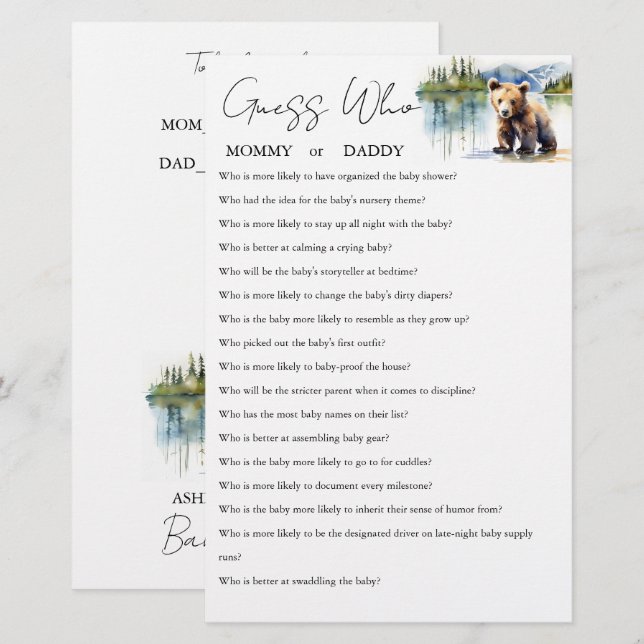 MOM_
DAD_
ASH
Guess Who
MOMMY or DADDY
Who is more likely to have organized the baby shower?
Who had the idea for the baby's nursery theme?
Who is more likely to stay up all night with the baby?
Who is better at calming a crying baby?
Who will be the baby's storyteller at bedtime?
Who is more likely to change the baby's dirty diapers?
Who is the baby more likely to resemble as they grow up?
Who picked out the baby's first outfit?
Who is more likely to baby-proof the house?
Who will be the stricter parent when it comes to discipline?
Who has the most baby names on their list?
Who is better at assembling baby gear?
Who is the baby more likely to go to for cuddles?
Who is more likely to document every milestone?
Who is the baby more likely to inherit their sense of humor from?
Who is more likely to be the designated driver on late-night baby supply
runs?
Who is better at swaddling the baby?